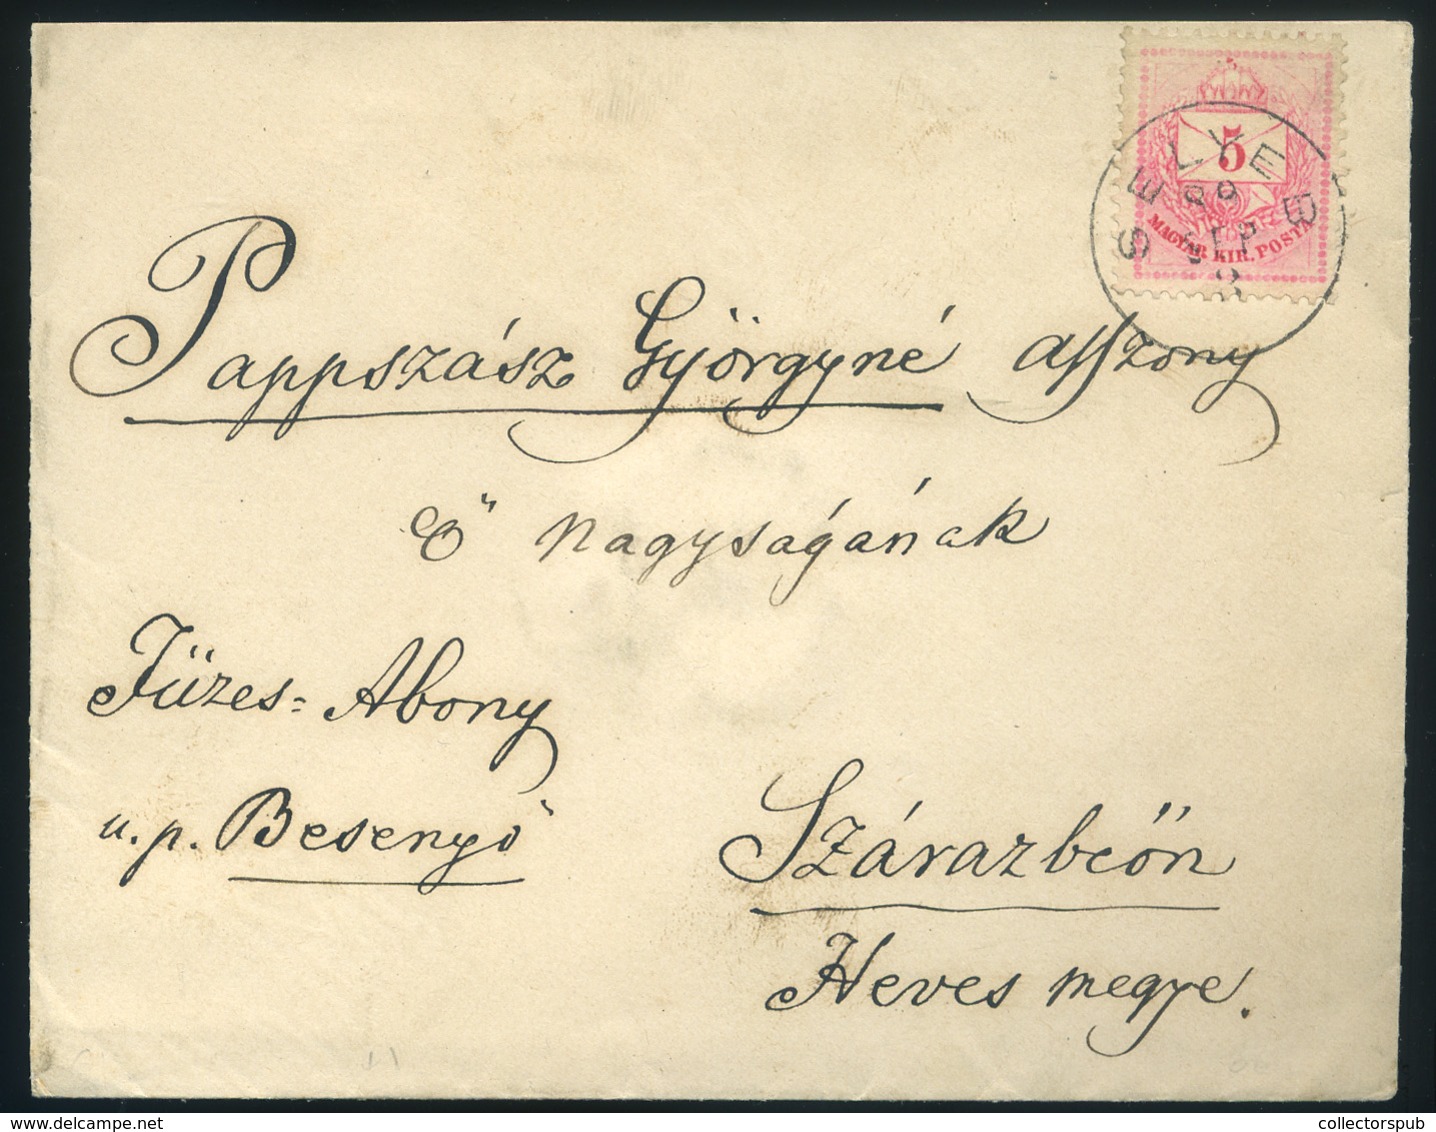 5
MAGYAR KIR. POSTA
SELYEB
89
SEP
Pappszász Györgyné asszony
Ő nagyságának
Füzes=Abony
u. p. Besenyő
Szárazbeőn
Heves megye.
collectorspub